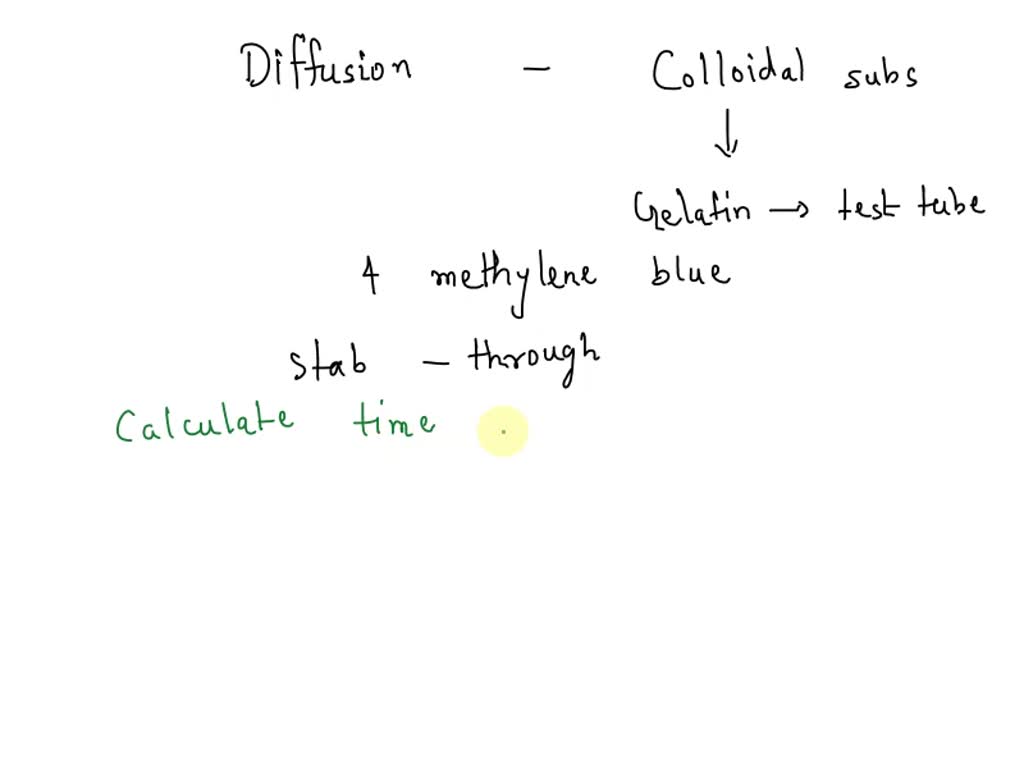 Diffusion - Colloidal subs
↓
Gelatin → test tube
4 methylene blue
stab - through
Calculate time